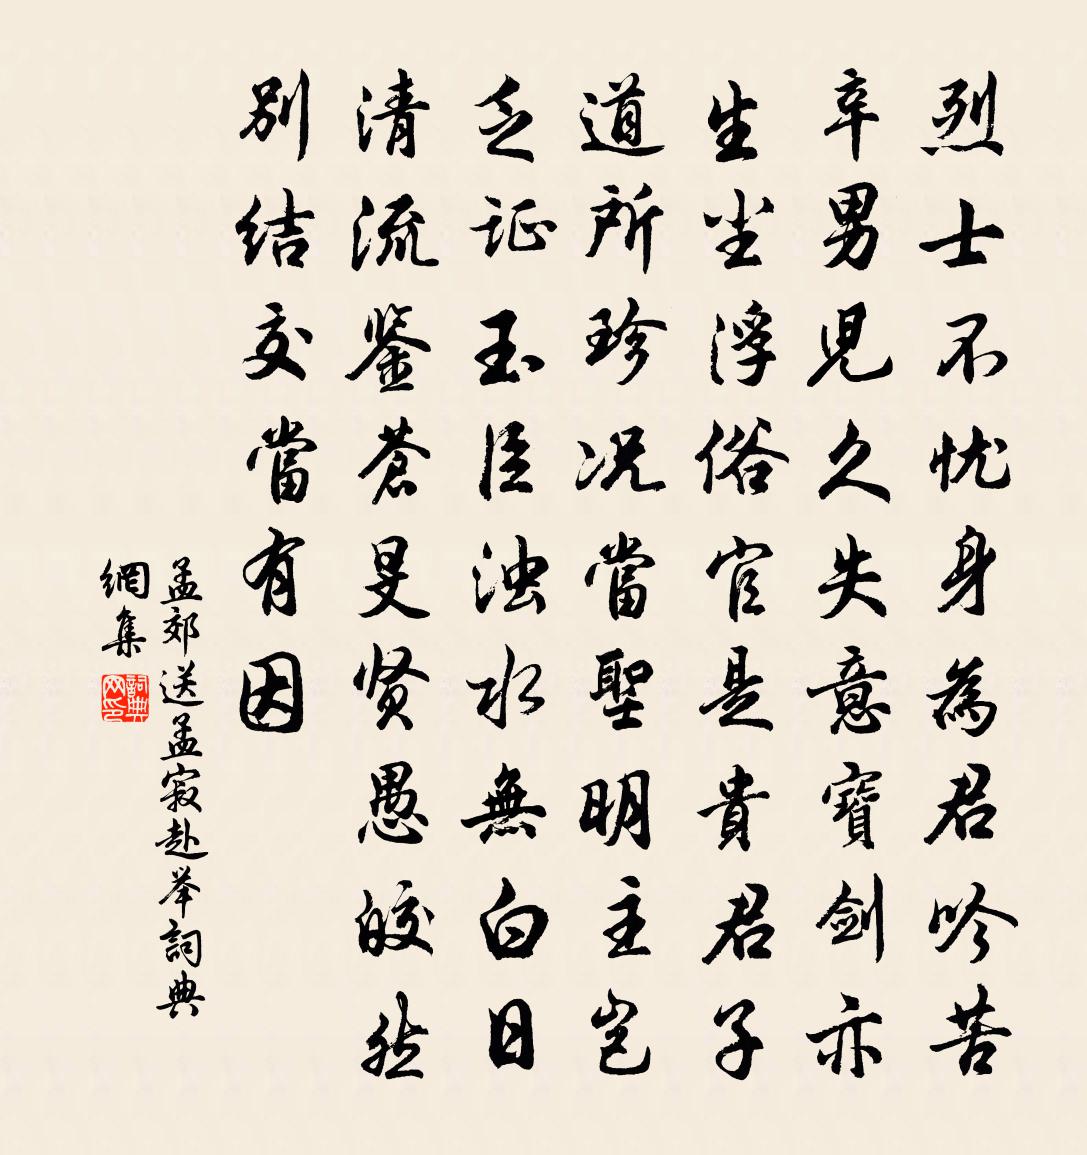 烈士不忧身為君吟苦
辛男児久失意寶劍亦
生尘浮俗官是貴君子
道所珍况當聖明主岂
乏证玉臣浊水無白日
清流鉴蒼旻贤愚皎然
别结交當有因
孟郊送孟寂赴举詞典
網集
詞典
网印